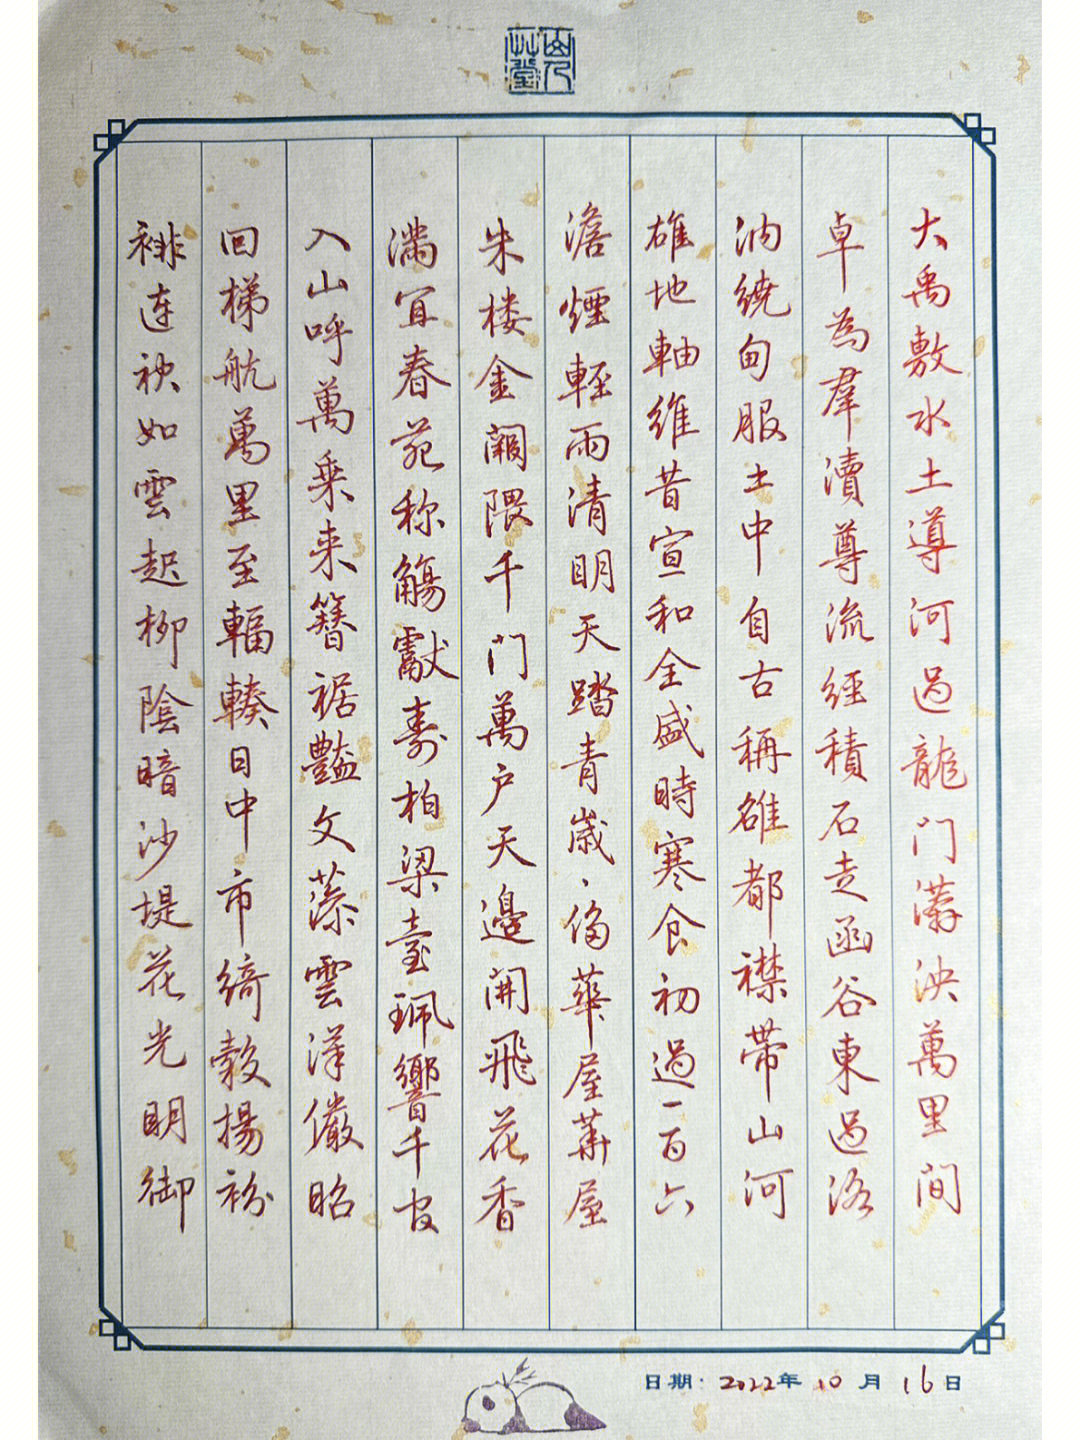 大禹敷水土導河過龍门漭泱萬里間
卓為羣瀆尊流經積石走函谷東過洛
汭繞甸服土中自古稱雄都襟帶山河
雄地軸維昔宣和全盛時寒食初過一百六
澹煙輕雨清明天踏青歲、侈華屋華屋
朱楼金闕隈千门萬户天邊開飛花香
滿宜春苑称觴獻壽柏梁臺珮響千官
入山呼萬乘来簪裾豔文藻雲漢儼昭
回梯航萬里至輻輳日中市綺縠揚袗
裶连袂如雲起柳陰暗沙堤花光明御
日期：2022年10月16日